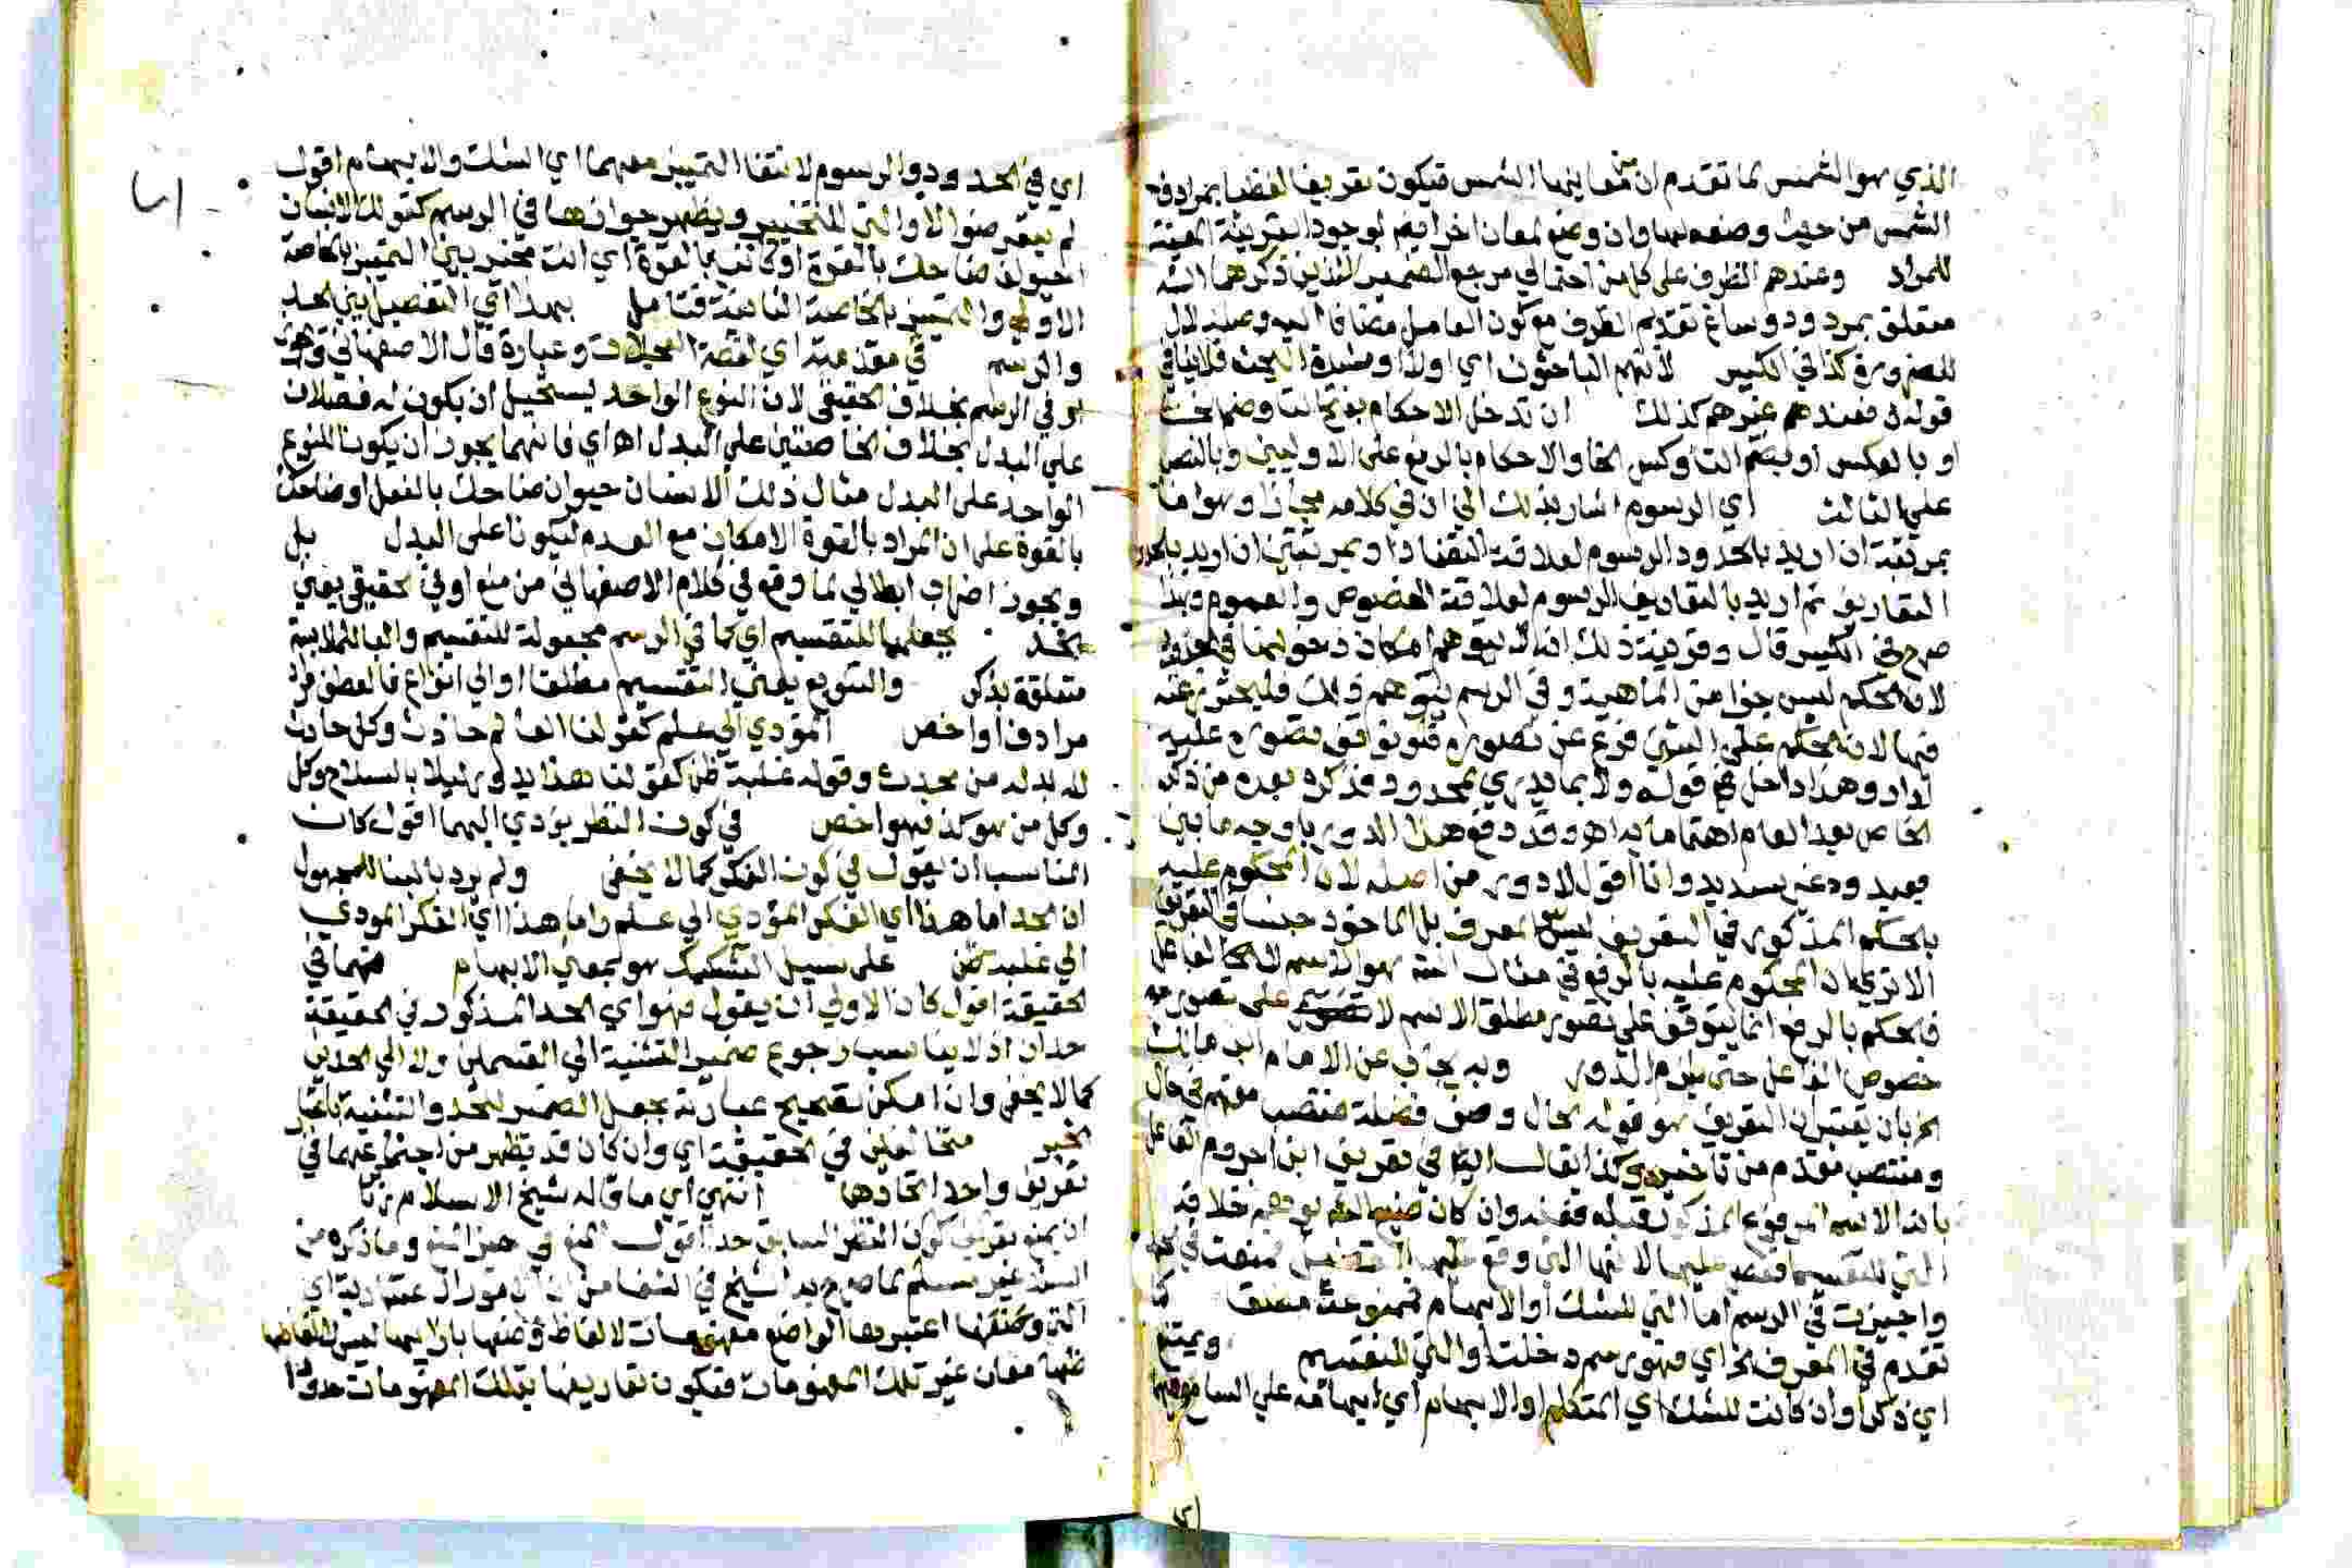 الذي هو الشمس لما تقدم ان من معانيها الشمس فيكون تعريفا لفظيا بمرادف
الشمس من حيث وضعه لها وان وضع لمعان اخر ايضا لوجود القرينة المعينة
للمراد وعندهم الظرف على كل من احتمالي مرجع الضمير اللذين ذكرهما الش
متعلق بمردود وساغ تقديم الظرف مع كون العامل مضافا اليه
للضرورة كذا في الكبير لانهم الباحثون اي اولا او مشدة البحث فلا ينافي
قوله فعندهم غيرهم كذلك ان تدخل الاحكام بفتح التا وضم الخا
او بالعكس او بضم التا وكسر الخا والاحكام بالرفع على الاوليين وبالنصب
على الثالث اي الرسوم اشار بذلك الى ان في كلامه مجازا وهو اما
بمرتبة ان اريد بالحدود الرسوم لعلاقة التضاد او بمرتبتين ان اريد بالحدود
التعاريف ثم اريد بالتعاريف الرسوم لعلاقة الخصوص والعموم
صرح في الكبير قال وقرينة ذلك انه لا يتوهم امكان دخولها في الحدود
لان الحكم ليس جزا من الماهية وفي الرسم يتوهم ذلك فليحترز عنه
فيها لان الحكم على الشي فرع عن تصوره فلو توقف تصوره عليه
لدار وهذا داخل في قوله ولا بما يدري بمحدود فذكره بعده من ذكر
الخاص بعد العام اهتماما به اه وقد دفع هذا الدور باوجه ما بين
بعيد وغير سديد وانا اقول لا دور من اصله لان المحكوم عليه
بالحكم المذكور في التعريف ليس المعرف بل الماخوذ جنسا في التعريف
الا ترى ان المحكوم عليه بالرفع في مثال الش هو الاسم لا الفاعل
فالحكم بالرفع انما يتوقف على تصور مطلق الاسم لا على تصور
خصوص الفاعل حتى يلزم الدور وبه يجاب عن الامام ابن مالك
الخ بان يعتبر ان التعريف هو قوله الحال وصف فضلة منتصب مفهم في حال
ومنتصب مقدم من تاخير وكذا يقال ايضا في تعريف ابن اجروم الفاعل
بانه الاسم المرفوع المذكور قبله فعله وان كان صنيع الش يوهم خلافه
التي للتقسيم اقتصر عليها لانها التي وقع فيها التفصيل فمنعت في الحد
واجيزت في الرسم اما التي للشك او الابهام فممنوعة مطلقا كما
تقدم في المعرف الخ اي فهو رسم دخلت او التي للتقسيم ويمتنع
اي ذكر او ان كانت للشك اي المتكلم او الابهام اي ابهامه على السامع
اي في الحدود والرسوم لانتفا التمييز معهما اي الشك والابهام اقول
لم يتعرضوا لاو التي للتخيير ويظهر جوازها في الرسم كقولك الانسان
الحيوان ضاحك بالقوة او كاتب بالقوة اي انت مخير بين التمييز بالخاصة
الاولى والتمييز بالخاصة الثانية فتامل بهذا اي التفصيل بين الحد
والرسم في مقدمته اي لقصة المجيلات وعبارة قال الاصفهاني
او في الرسم بخلاف الحقيقي لان النوع الواحد يستحيل ان يكون له فصلان
على البدل بخلاف الخاصتين على البدل اه اي فانهما يجوز ان يكونا للنوع
الواحد على البدل مثال ذلك الانسان حيوان ضاحك بالفعل او ضاحك
بالقوة على ان المراد بالقوة الامكان مع العدم ليكونا على البدل بل
ويجوز اضراب ابطالي لما وقع في كلام الاصفهاني من منع او في الحقيقي يعني
الحد بجعلها للتقسيم اي كما في الرسم مجعولة للتقسيم والبا للملابسة
متعلقة بذكر والتنويع يعني التقسيم مطلقا او الى انواع فالعطف
مرادف او اخص المؤدي الى علم كقولنا العالم حادث وكل حادث
له بد له من محدث وقوله غلبة ظن كقولنا هذا يدور ليلا بالسلاح وكل
وكل من هو كذا فهو اخص في كون النظر يؤدي اليهما اقول كان
المناسب ان يقول في كون الفكر كما لا يخفى ولم يرد بالبنا للمجهول
ان الحد اما هذا اي الفكر المؤدي الى علم واما هذا اي الفكر المودي
الى غلبة ظن على سبيل التشكيك هو بمعنى الابهام فهما في
الحقيقة اقول كان الاولى ان يقول فهو اي الحد المذكور في الحقيقة
حدان اذ لا يناسب رجوع ضمير التثنية الى القسمين ولا الى الحدين
كما لا يخفى وان امكن تصحيح عبارته بجعل الضمير للحد والتثنية باعتبار
الخبر متخالفين في الحقيقة اي وان كان قد يظهر من اجتماعهما في
تعريف واحد اتحادهما انتهى اي ما قاله شيخ الاسلام زكريا
ان يمنع تعريف كون النظر السابق حدا اقول المنع في حيز المنع وما ذكره من
السند غير مسلم لما صرح به الشيخ في الشفا من ان الامور الاعتبارية اي
التي حققها اعتبرها الواضع مفهومات لالفاظ وضعها بازائها ليس لالفاظها
فيها معان غير تلك المفهومات فتكون تعاريفها بتلك المفهومات حدودا